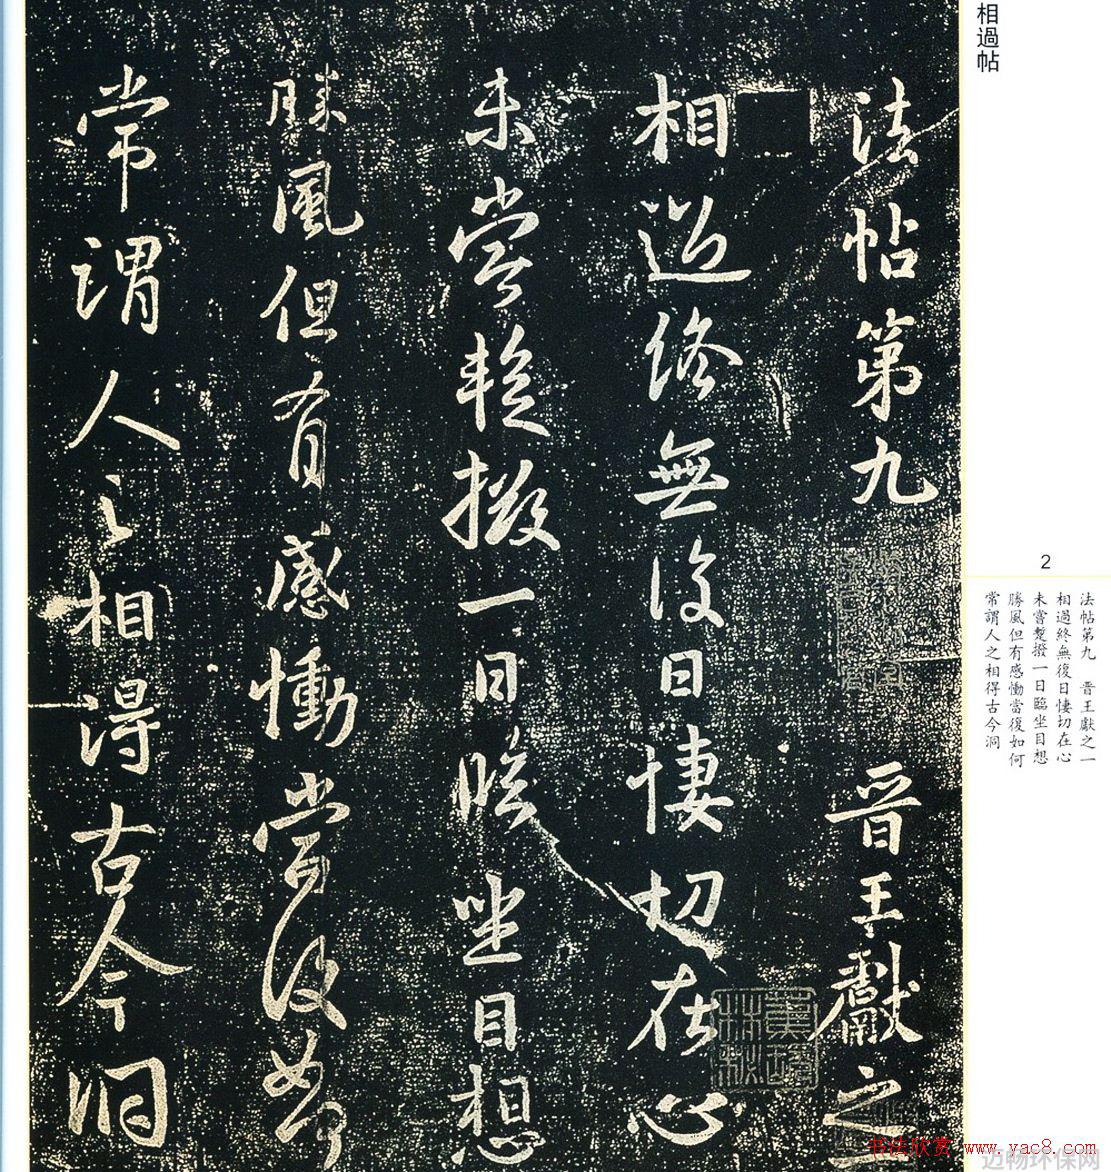 相過帖
法帖第九 晉王獻之一
相過終無復日悽切在心
未嘗蹔撥一日臨坐目想
勝風但有感慟當復如何
常謂人之相得古今洞
2
法帖第九 晉王獻之一
相過終無復日悽切在心
未嘗蹔撥一日臨坐目想
勝風但有感慟當復如何
常謂人之相得古今洞
书法欣赏 www.yac8.com
迈畅环保网